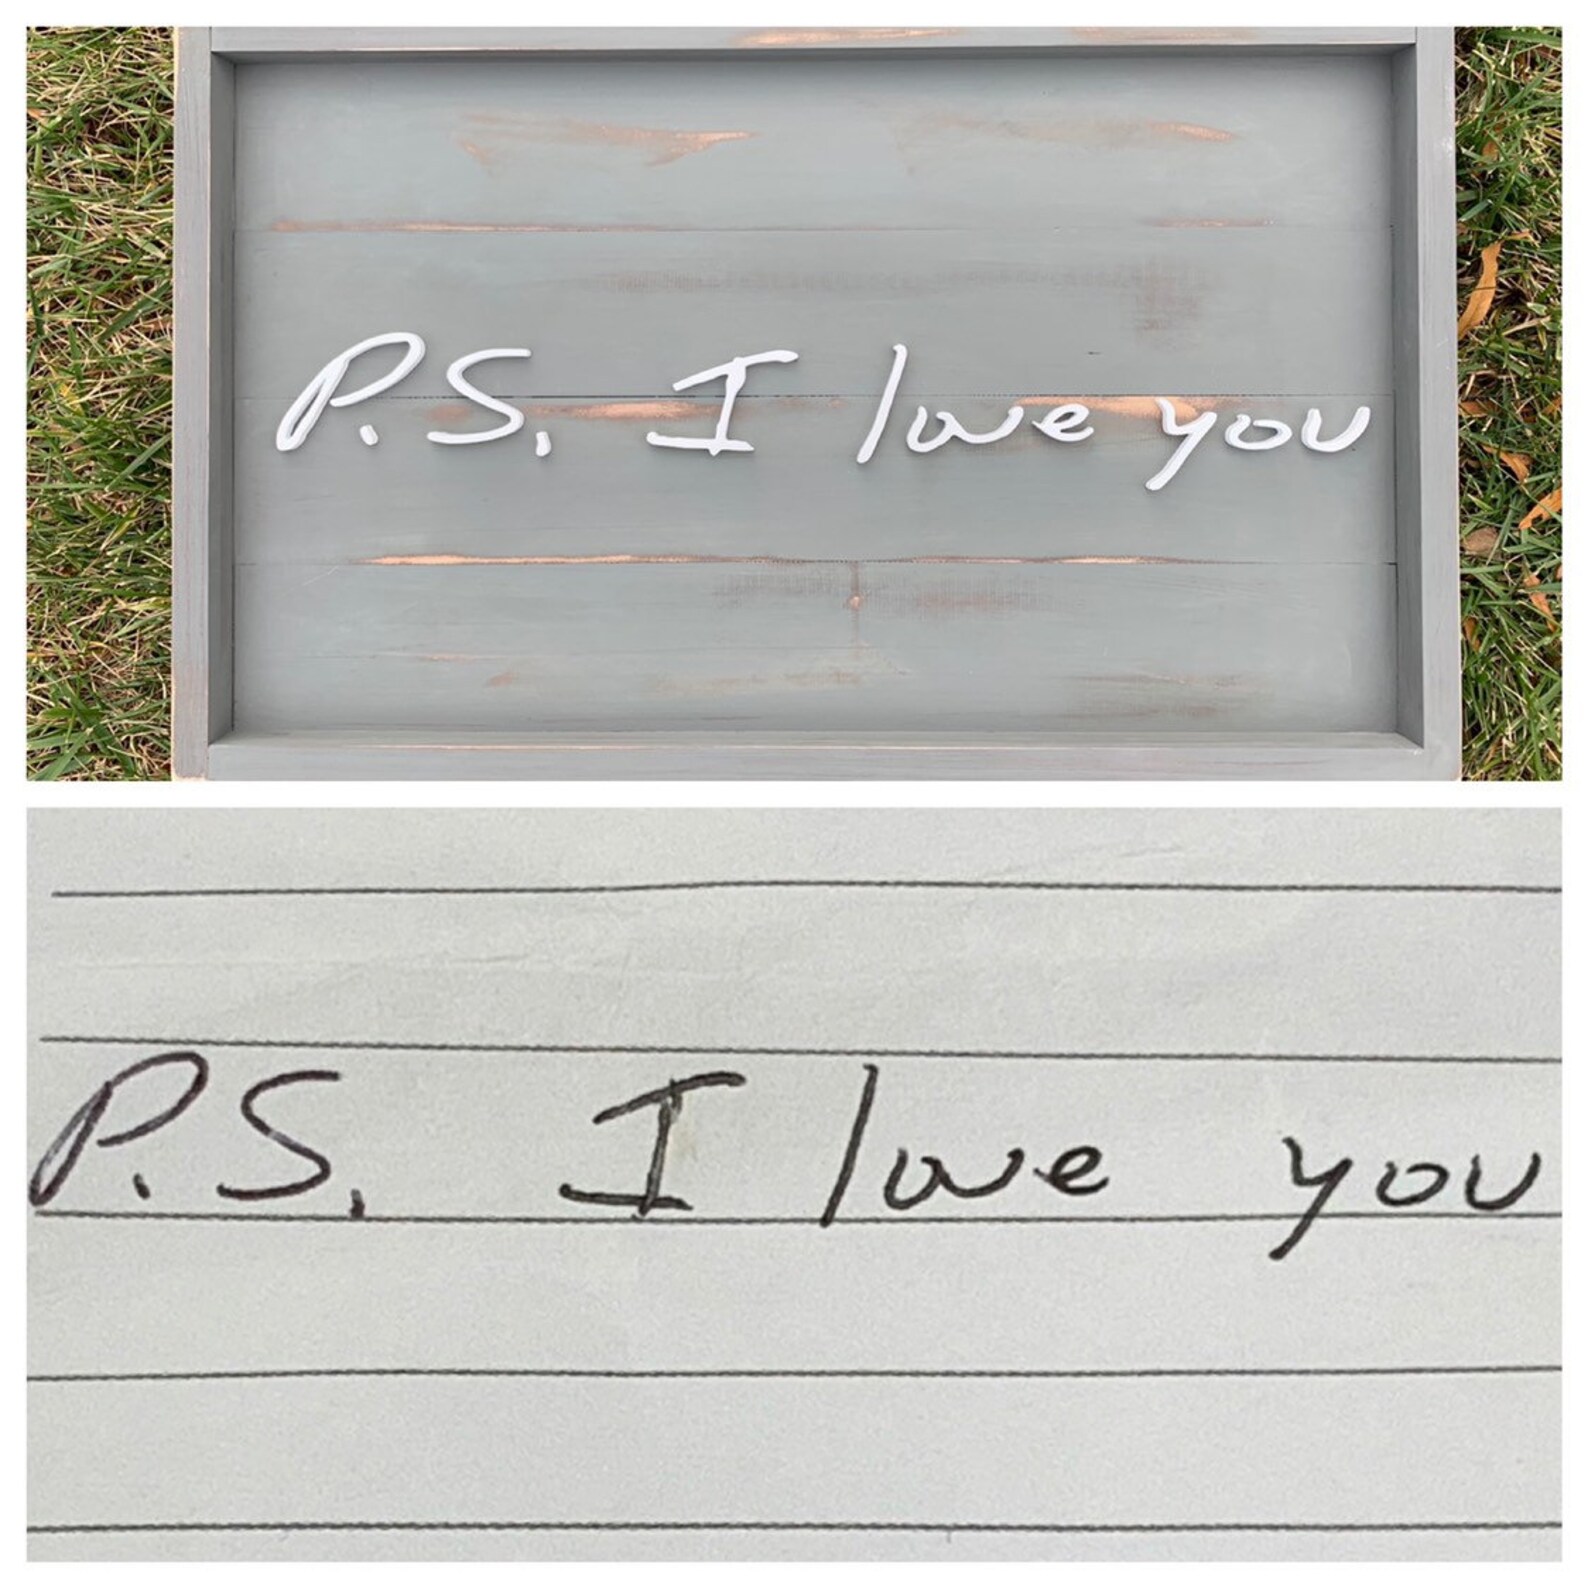 P.S. I love you
P.S. I love you